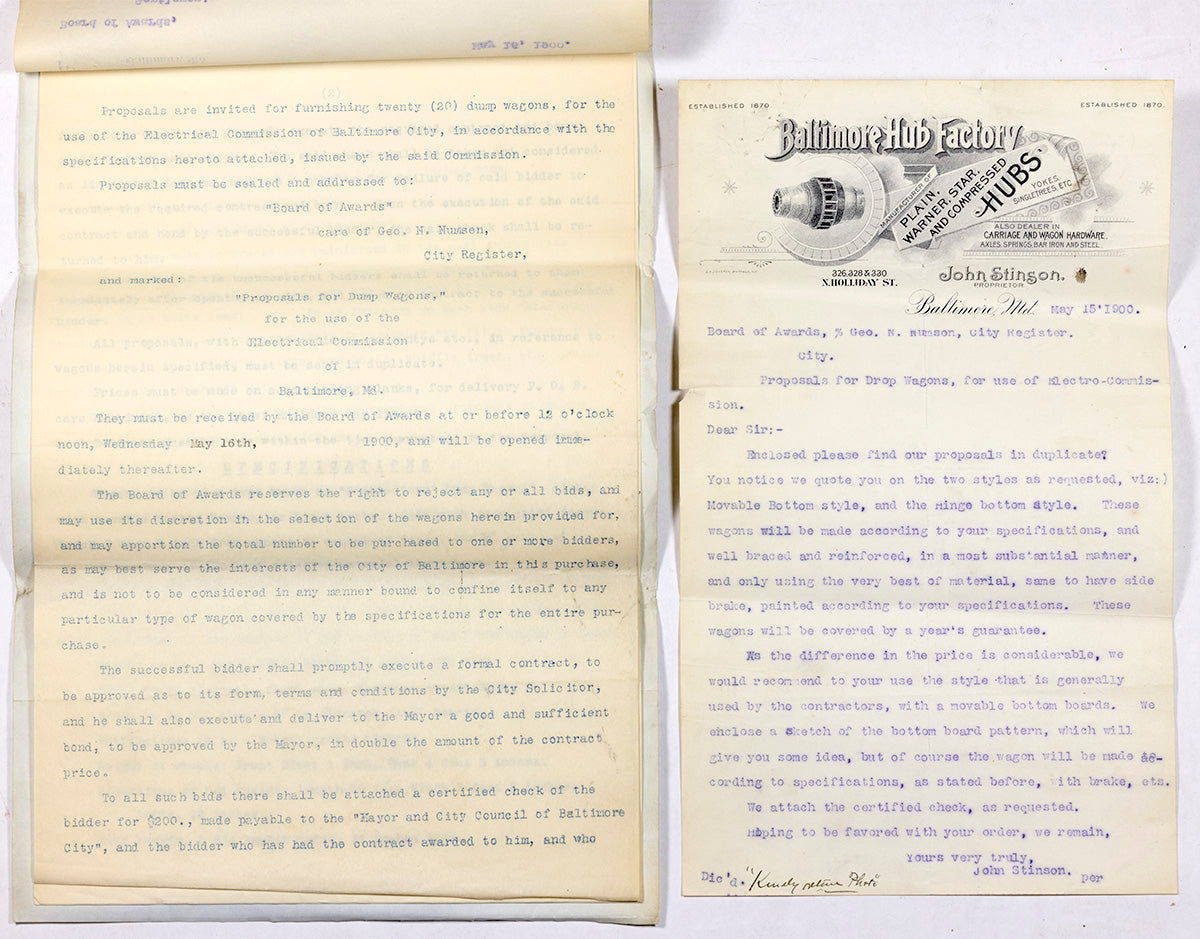 Board of Awards,
May 16, 1900.
(2)
Proposals are invited for furnishing twenty (20) dump wagons, for the
use of the Electrical Commission of Baltimore City, in accordance with the
specifications hereto attached, issued by the said Commission.
Proposals must be sealed and addressed to:
"Board of Awards"
care of Geo. N. Numsen,
City Register,
and marked:
"Proposals for Dump Wagons,"
for the use of the
Electrical Commission
of
Baltimore, Md.
They must be received by the Board of Awards at or before 12 o'clock
noon, Wednesday May 16th, 1900, and will be opened imme-
diately thereafter.
The Board of Awards reserves the right to reject any or all bids, and
may use its discretion in the selection of the wagons herein provided for,
and may apportion the total number to be purchased to one or more bidders,
as may best serve the interests of the City of Baltimore in this purchase,
and is not to be considered in any manner bound to confine itself to any
particular type of wagon covered by the specifications for the entire pur-
chase.
The successful bidder shall promptly execute a formal contract, to
be approved as to its form, terms and conditions by the City Solicitor,
and he shall also execute and deliver to the Mayor a good and sufficient
bond, to be approved by the Mayor, in double the amount of the contract
price.
To all such bids there shall be attached a certified check of the
bidder for $200., made payable to the "Mayor and City Council of Baltimore
City", and the bidder who has had the contract awarded to him, and who
ESTABLISHED 1870.
ESTABLISHED 1870.
Baltimore Hub Factory
MANUFACTURER OF
PLAIN,
WARNER, STAR,
AND COMPRESSED
HUBS
YOKES,
SINGLETREES, ETC.
ALSO DEALER IN
CARRIAGE AND WAGON HARDWARE,
AXLES, SPRINGS, BAR IRON AND STEEL.
326, 328 & 330
N. HOLLIDAY ST.
John Stinson.
PROPRIETOR
Baltimore, Md. May 15'1900.
Board of Awards, % Geo. N. Numson, City Register.
City.
Proposals for Drop Wagons, for use of Electro-Commis-
sion.
Dear Sir:-
Enclosed please find our proposals in duplicate?
You notice we quote you on the two styles as requested, viz:)
Movable Bottom style, and the Hinge bottom style. These
wagons will be made according to your specifications, and
well braced and reinforced, in a most substantial manner,
and only using the very best of material, same to have side
brake, painted according to your specifications. These
wagons will be covered by a year's guarantee.
As the difference in the price is considerable, we
would recommend to your use the style that is generally
used by the contractors, with a movable bottom boards. We
enclose a sketch of the bottom board pattern, which will
give you some idea, but of course the wagon will be made ac-
cording to specifications, as stated before, with brake, ets.
We attach the certified check, as requested.
Hoping to be favored with your order, we remain,
Yours very truly,
John Stinson.
Dic'd. "Kindly return Photo per